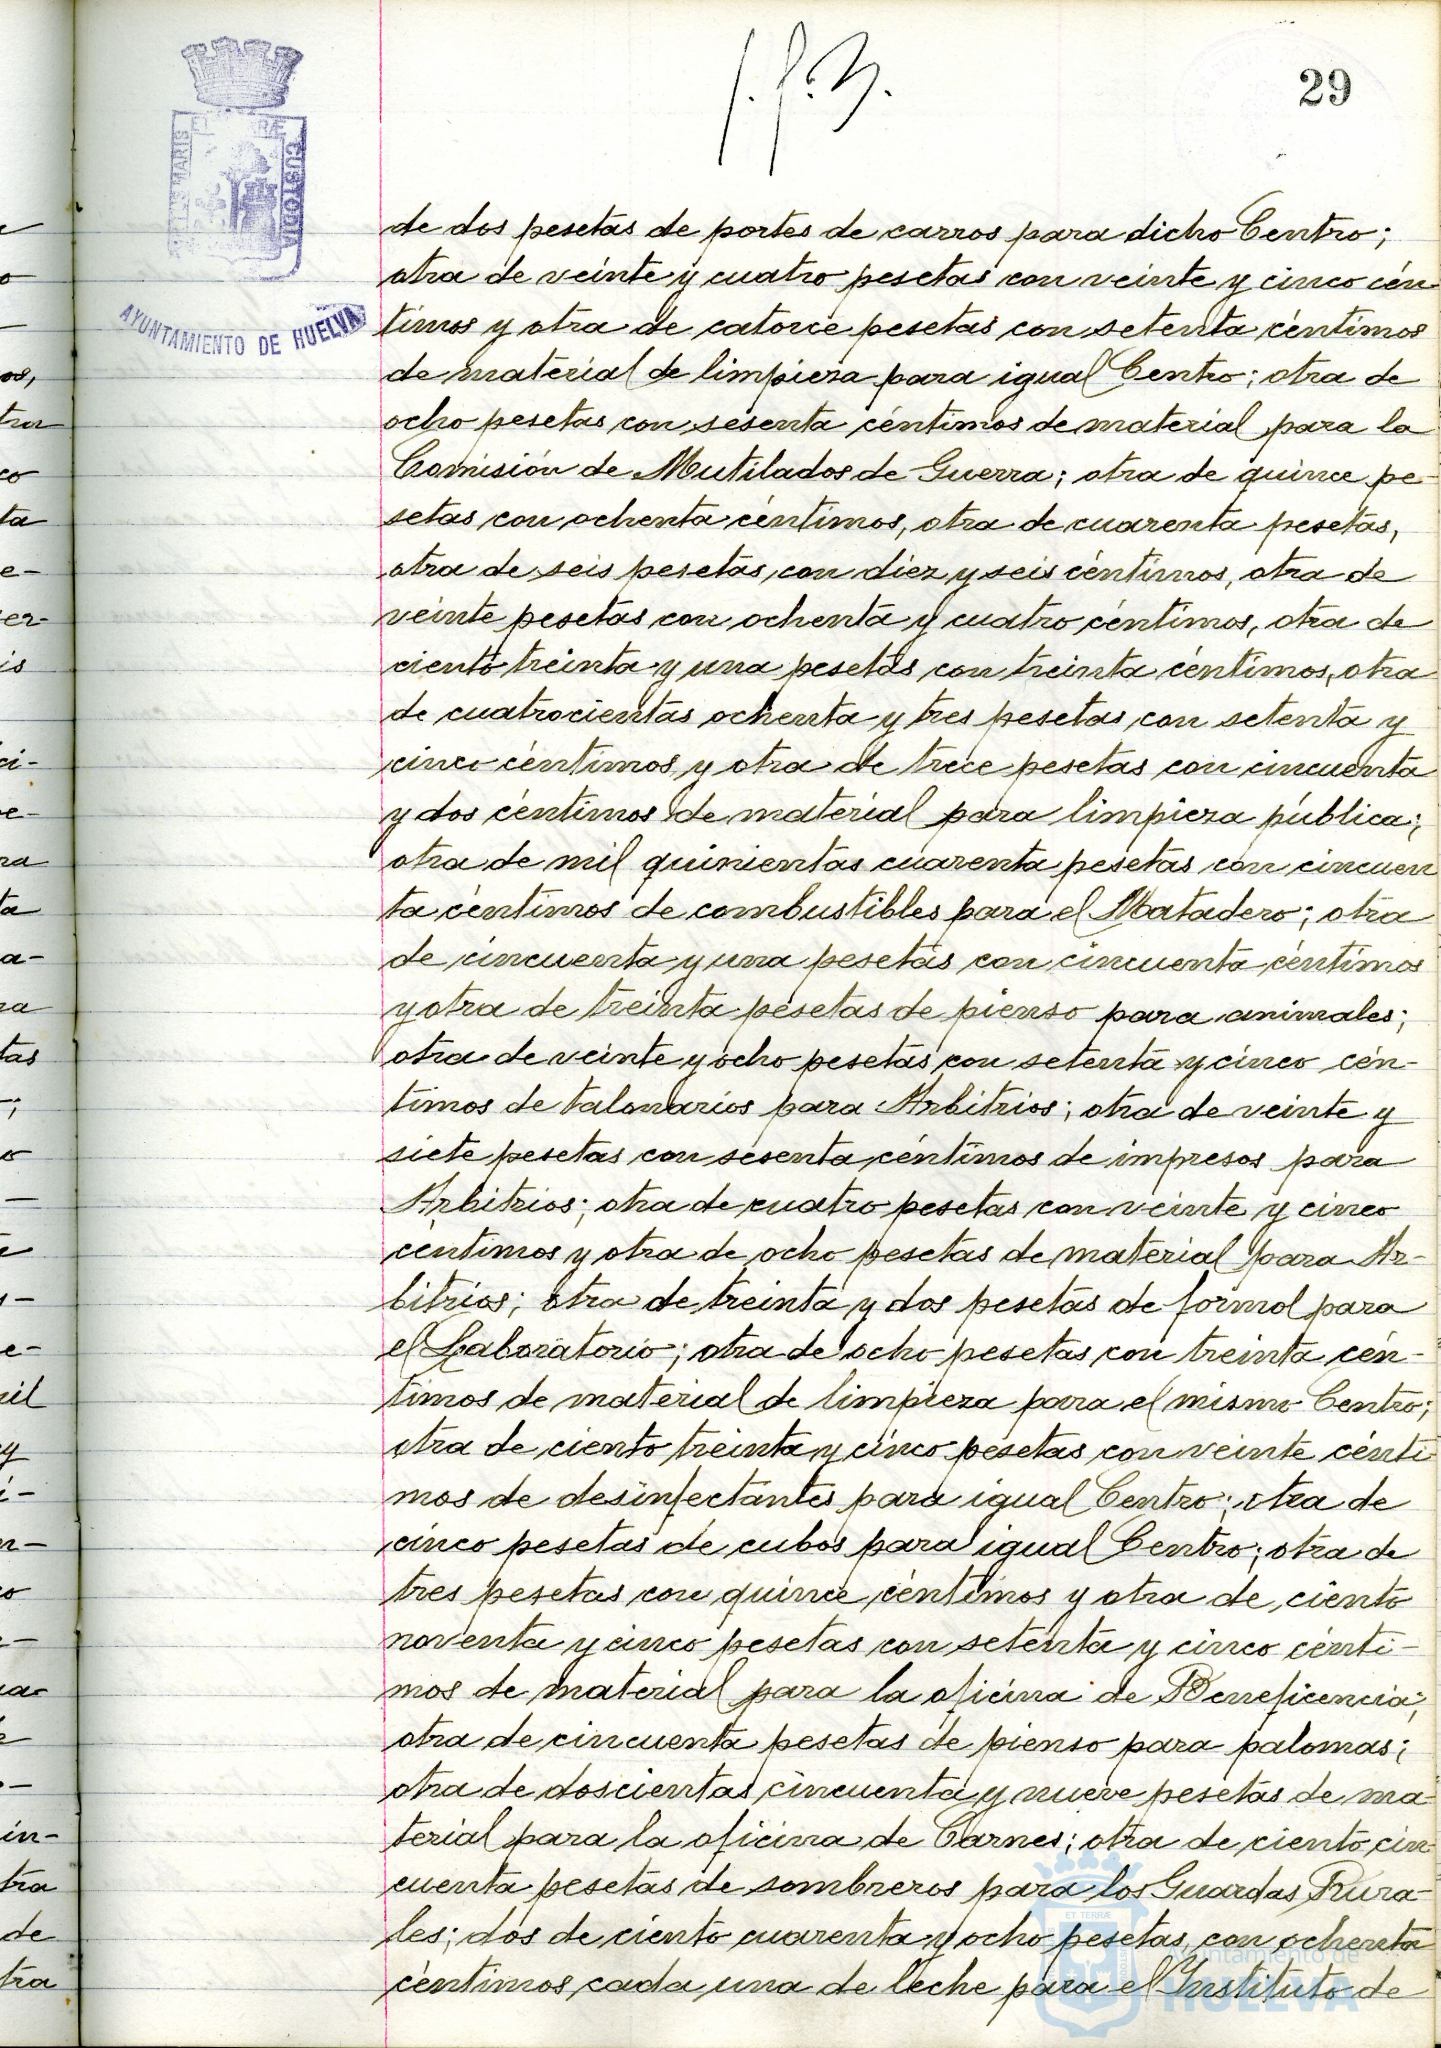 29
PORTUS MARIS ET TERRÆ CUSTODIA
AYUNTAMIENTO DE HUELVA
de dos pesetas de portes de carros para dicho Centro;
otra de veinte y cuatro pesetas con veinte y cinco cén
timos y otra de catorce pesetas con setenta céntimos
de material de limpieza para igual Centro; otra de
ocho pesetas con sesenta céntimos de material para la
Comisión de Mutilados de Guerra; otra de quince pe-
setas con ochenta céntimos, otra de cuarenta pesetas,
otra de seis pesetas con diez y seis céntimos, otra de
veinte pesetas con ochenta y cuatro céntimos, otra de
ciento treinta y una pesetas con treinta céntimos, otra
de cuatrocientas ochenta y tres pesetas con setenta y
cinco céntimos y otra de trece pesetas con cincuenta
y dos céntimos de material para limpieza pública;
otra de mil quinientas cuarenta pesetas con cincuen
ta céntimos de combustibles para el Matadero; otra
de cincuenta y una pesetas con cincuenta céntimos
y otra de treinta pesetas de pienso para animales;
otra de veinte y ocho pesetas con setenta y cinco cén-
timos de talonarios para Arbitrios; otra de veinte y
siete pesetas con sesenta céntimos de impresos para
Arbitrios; otra de cuatro pesetas con veinte y cinco
céntimos y otra de ocho pesetas de material para Ar-
bitrios; otra de treinta y dos pesetas de formol para
el Laboratorio; otra de ocho pesetas con treinta cén-
timos de material de limpieza para el mismo Centro;
otra de ciento treinta y cinco pesetas con veinte cénti
mos de desinfectantes para igual Centro; otra de
cinco pesetas de cubos para igual Centro; otra de
tres pesetas con quince céntimos y otra de ciento
noventa y cinco pesetas con setenta y cinco cénti-
mos de material para la oficina de Beneficencia;
otra de cincuenta pesetas de pienso para palomas;
otra de doscientas cincuenta y nueve pesetas de ma-
terial para la oficina de Carnes; otra de ciento cin
cuenta pesetas de sombreros para los Guardas Rura-
les; dos de ciento cuarenta y ocho pesetas con ochenta
céntimos cada una de leche para el Instituto de
Ayuntamiento de
HUELVA